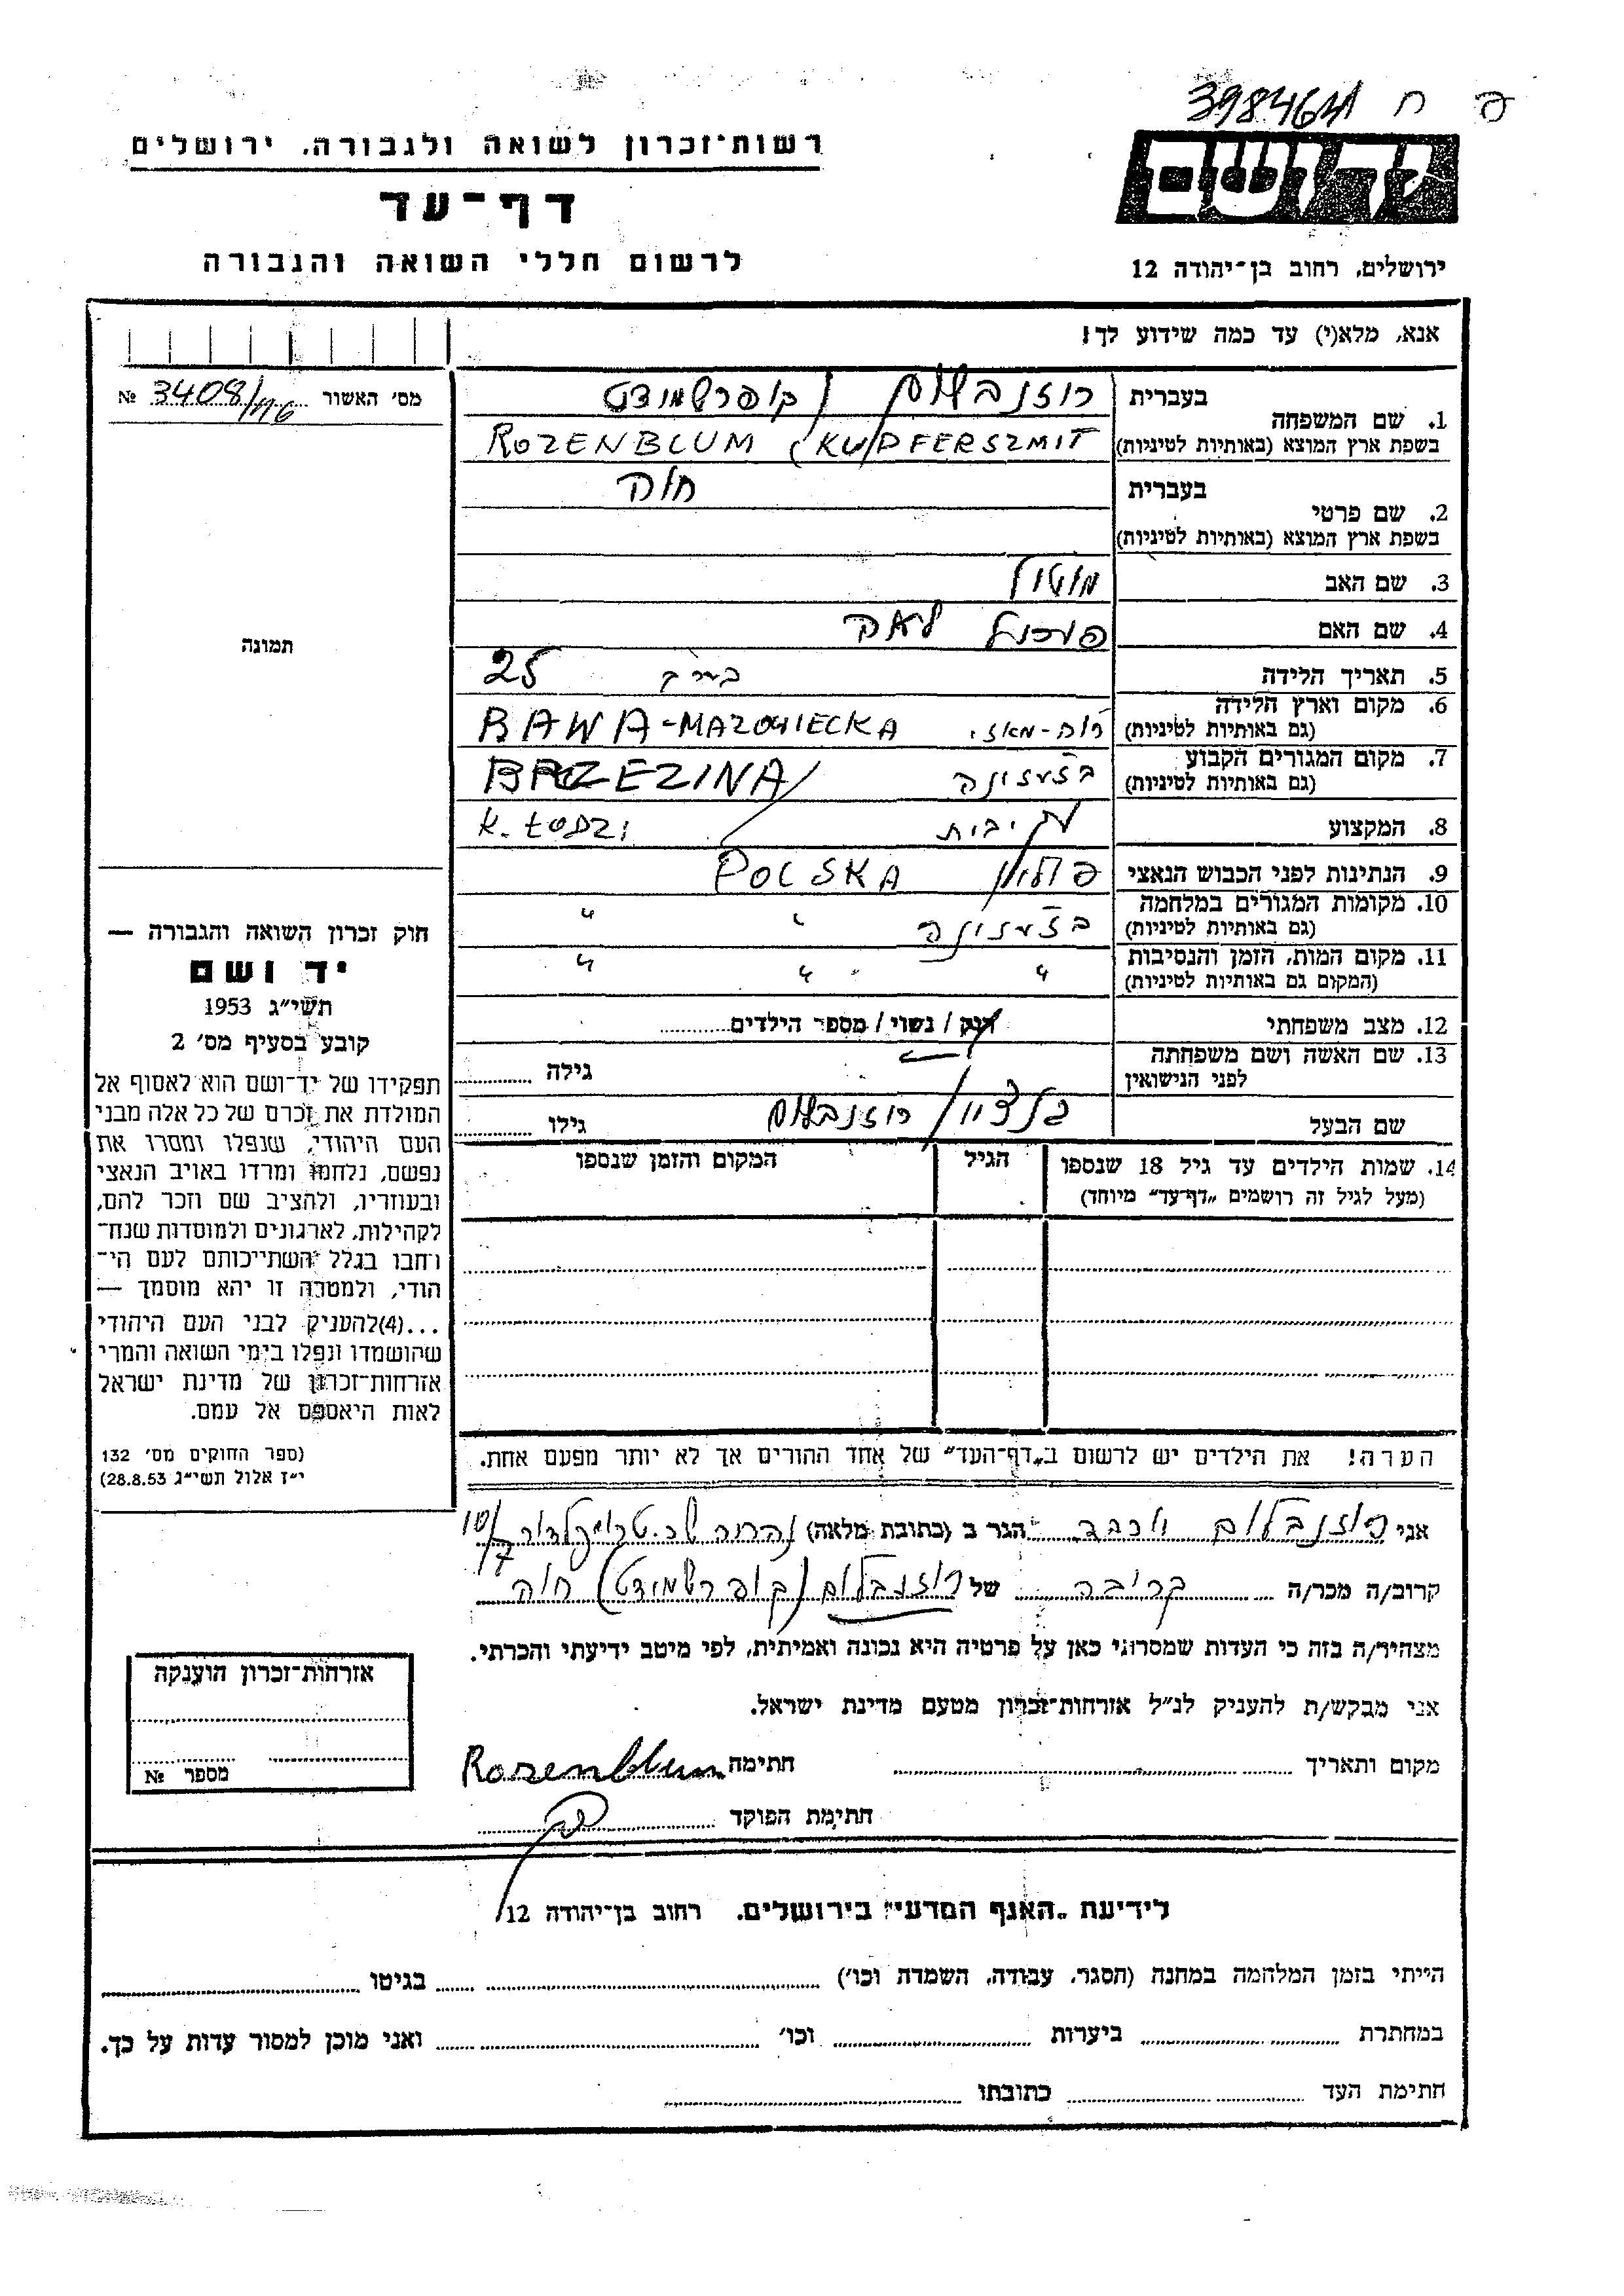 398464 ח פ
יד ושם
ירושלים, רחוב בן־יהודה 12
רשות־זכרון לשואה ולגבורה, ירושלים
דף־עד
לרשום חללי השואה והגבורה
אנא, מלא(י) עד כמה שידוע לך!
מס׳ האשור № 3408/116
1. שם המשפחה
בעברית רוזנבלום / קופרשמידט
בשפת ארץ המוצא (באותיות לטיניות) ROZENBLUM (KUPFERSZMIT
2. שם פרטי
בעברית חוה
בשפת ארץ המוצא (באותיות לטיניות)
3. שם האב מוטל
4. שם האם לאה
5. תאריך הלידה 25
6. מקום וארץ הלידה
(גם באותיות לטיניות) RAWA-MAZOWIECKA
7. מקום המגורים הקבוע
(גם באותיות לטיניות) בז'ז'ינה BRZEZINA/
8. המקצוע K. ŁODZI
9. הנתינות לפני הכבוש הנאצי פולין POLSKA
10. מקומות המגורים במלחמה
(גם באותיות לטיניות) בז'ז'ינה " "
11. מקום המות, הזמן והנסיבות
(המקום גם באותיות לטיניות) " " "
12. מצב משפחתי רוק / נשוי / מספר הילדים
13. שם האשה ושם משפחתה
לפני הנישואין גילה
שם הבעל בן ציון / רוזנבלום גילו
14. שמות הילדים עד גיל 18 שנספו
(מעל לגיל זה רושמים „דף־עד״ מיוחד)
הגיל
המקום והזמן שנספו
הערה! את הילדים יש לרשום ב„דף־העד״ של אחד ההורים אך לא יותר מפעם אחת.
תמונה
חוק זכרון השואה והגבורה —
יד ושם
תשי״ג 1953
קובע בסעיף מס׳ 2
תפקידו של יד־ושם הוא לאסוף אל
המולדת את זכרם של כל אלה מבני
העם היהודי, שנפלו ומסרו את
נפשם, נלחמו ומרדו באויב הנאצי
ובעוזריו, ולהציב שם וזכר להם,
לקהילות, לארגונים ולמוסדות שנח־
רחבו בגלל השתייכותם לעם הי־
הודי, ולמטרה זו יהא מוסמך —
...(4)להעניק לבני העם היהודי
שהושמדו ונפלו בימי השואה והמרי
אזרחות־זכרון של מדינת ישראל
לאות היאספם אל עמם.
(ספר החוקים מס׳ 132
י״ז אלול תשי״ג 28.8.53)
אני רוזנבלום יוכבד הגר ב (כתובת מלאה) נהריה
קרוב/ה מכר/ה קרובה של רוזנבלום (קופרשמידט) חוה
מצהיר/ה בזה כי העדות שמסרתי כאן על פרטיה היא נכונה ואמיתית, לפי מיטב ידיעתי והכרתי.
אני מבקש/ת להעניק לנ״ל אזרחות־זכרון מטעם מדינת ישראל.
מקום ותאריך חתימה Rozenblum
חתימת הפוקד
אזרחות־זכרון הוענקה
מספר №
לידיעת „האגף המדעי״ בירושלים. רחוב בן־יהודה 12
הייתי בזמן המלחמה במחנה (הסגר, עבודה, השמדת וכו׳) בגיטו
במחתרת ביערות וכו׳ ואני מוכן למסור עדות על כך.
חתימת העד כתובתו